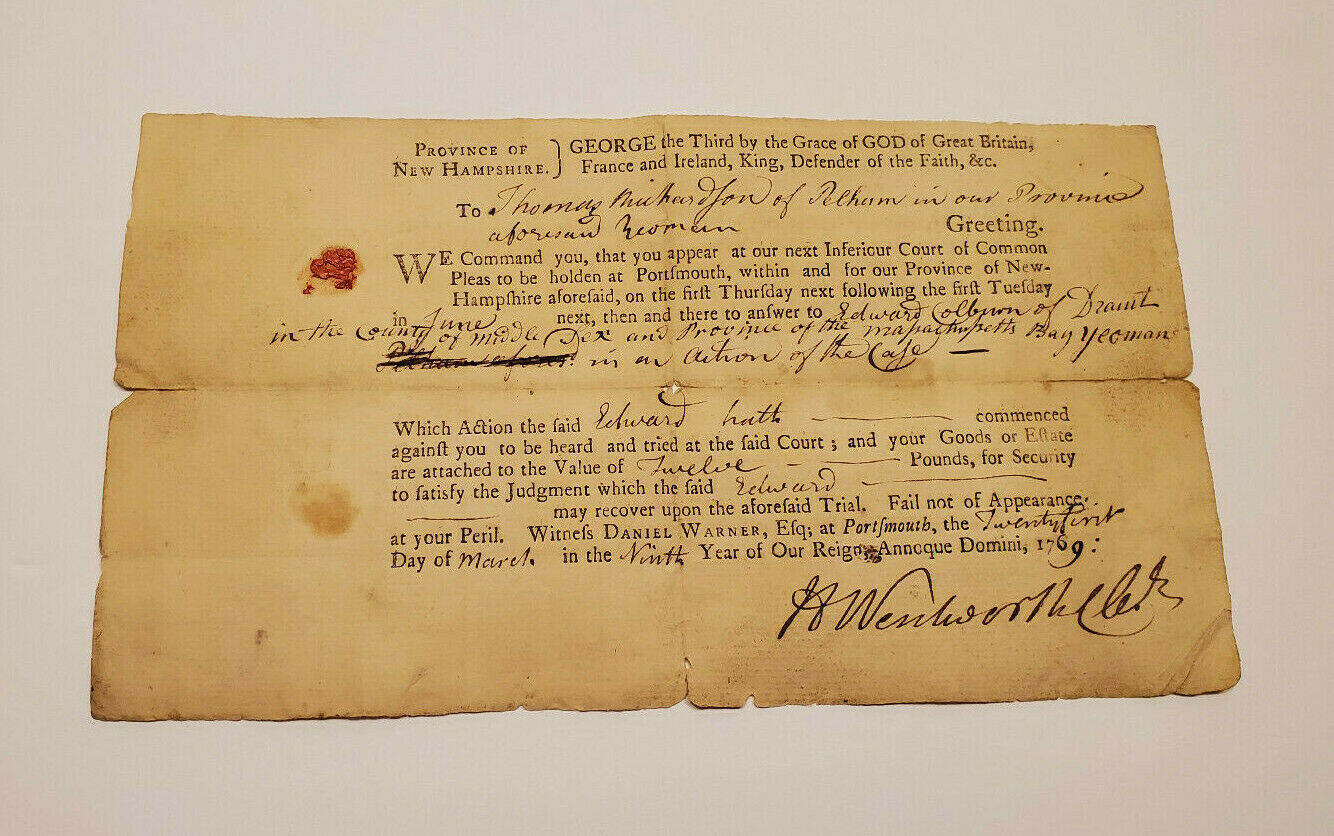 PROVINCE OF NEW HAMPSHIRE. } GEORGE the Third by the Grace of GOD of Great Britain,
France and Ireland, King, Defender of the Faith, &c.
To Thomas Richardſon of Pelham in our Province
aforesaid Yeoman Greeting.
WE Command you, that you appear at our next Inferiour Court of Common
Pleas to be holden at Portſmouth, within and for our Province of New-
Hampſhire aforeſaid, on the firſt Thurſday next following the firſt Tueſday
in June next, then and there to answer to Edward Colburn of Dracut
in the County of Middleſex and Province of the Maſsachuſetts Bay Yeoman
in an Action of the Caſe —
Which Action the ſaid Edward hath commenced
againſt you to be heard and tried at the ſaid Court; and your Goods or Eſtate
are attached to the Value of Twelve Pounds, for Security
to ſatisfy the Judgment which the ſaid Edward
may recover upon the aforeſaid Trial. Fail not of Appearance
at your Peril. Witneſs DANIEL WARNER, Eſq; at Portſmouth, the Twenty firſt
Day of March in the Ninth Year of Our Reign Annoque Domini, 1769:
H Wentworth Cler